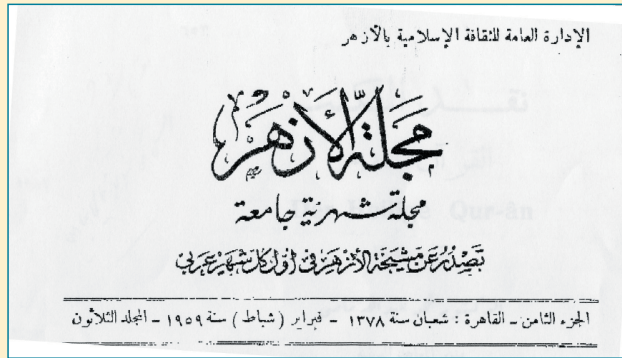 الإدارة العامة للثقافة الإسلامية بالأزهر
مَجَلَّة الأزهَر
مجلة شهرية جامعة
تَصْدُرُ عَنْ مَشْيَخَةِ الأزهَر في أول كلّ شهر عَرَبي
الجزء الثامن – القاهرة : شعبان سنة ١٣٧٨ – فبراير ( شباط ) سنة ١٩٥٩ – المجلد الثلاثون
Qur-ân